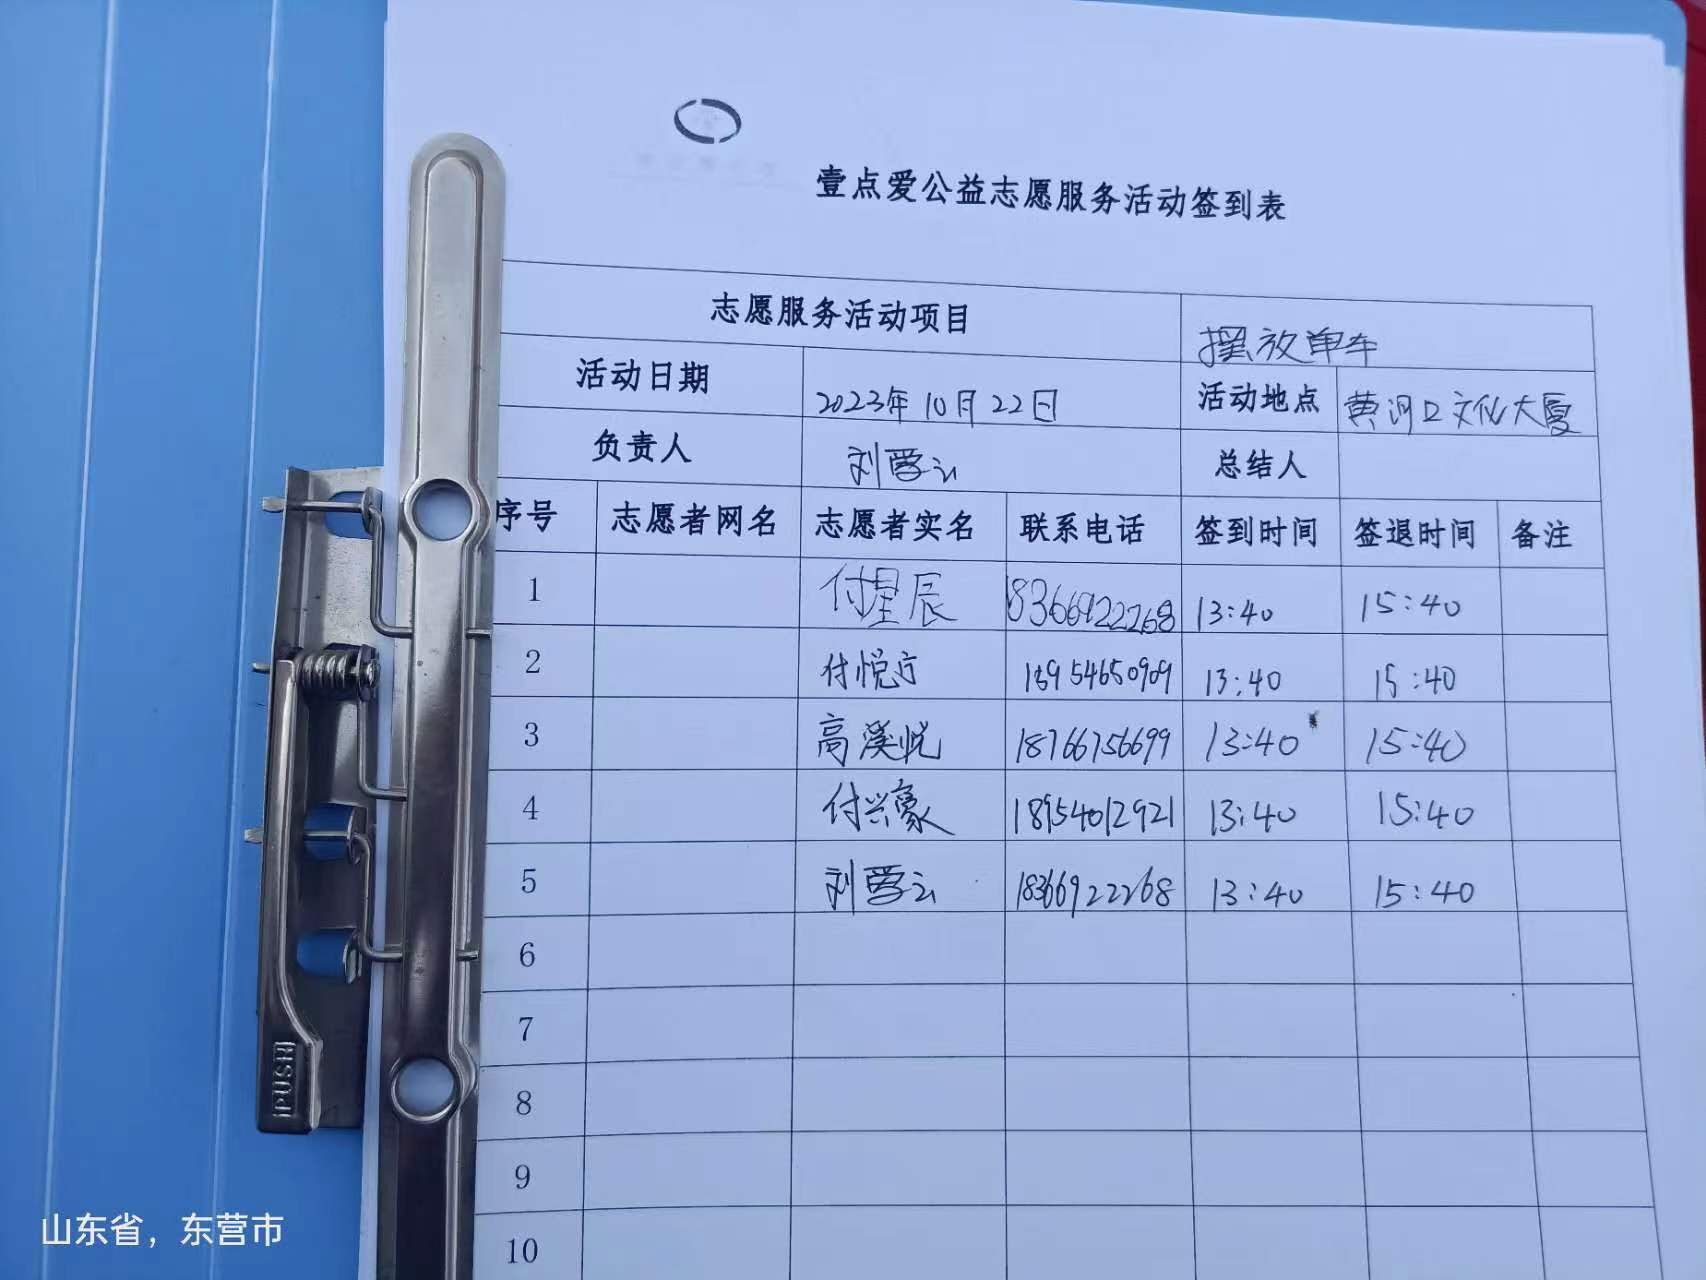 壹点爱公益志愿服务活动签到表
志愿服务活动项目 摆放单车
活动日期 2023年10月22日 活动地点 黄河口文化大厦
负责人 刘雪云 总结人
序号 志愿者网名 志愿者实名 联系电话 签到时间 签退时间 备注
1 付星辰 18366922268 13:40 15:40
2 付悦 18954650909 13:40 15:40
3 高溪悦 18766756699 13:40 15:40
4 付兴豪 18954012921 13:40 15:40
5 刘雪云 18366922268 13:40 15:40
6
7
8
9
10
PUSH
山东省，东营市